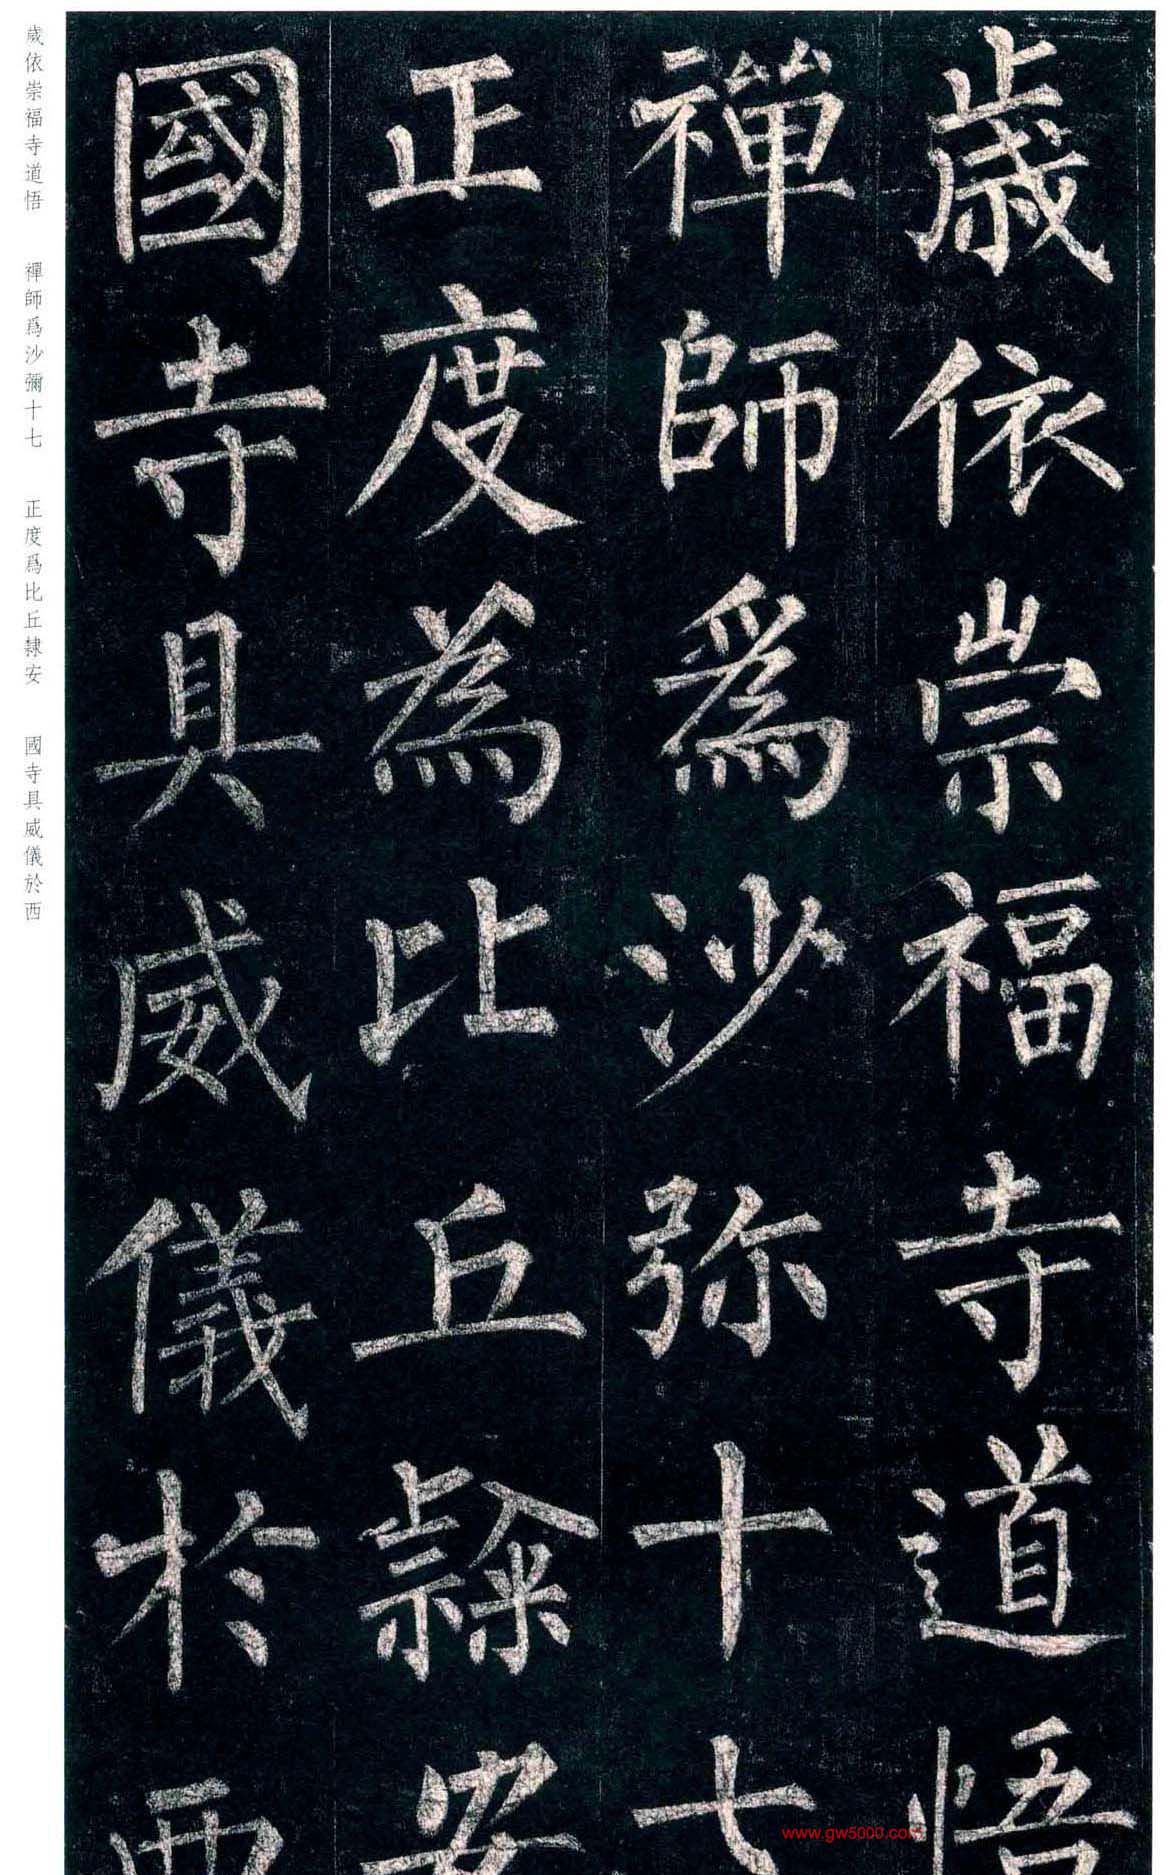 歲依崇福寺道悟
禪師爲沙弥十七
正度為比丘隸安
國寺具威儀於西
歲依崇福寺道悟　禪師爲沙彌十七　正度爲比丘隸安　國寺具威儀於西
www.gw5000.com